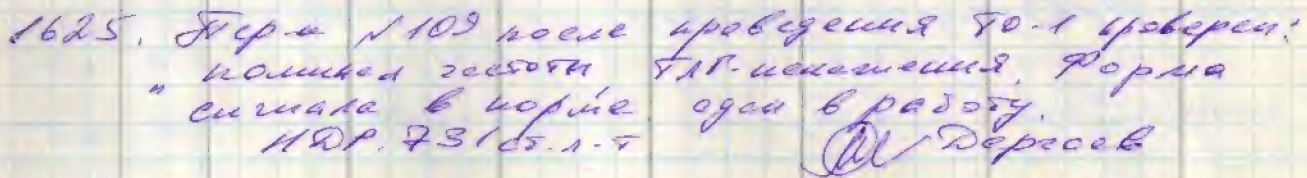 1625. Пер-к №109 после проведения ТО-1 проверен:
" номинал частоты ТЛГ-искажения, Форма
сигнала в норме сдан в работу.
НДР. 731 ст. л-т Дергаев